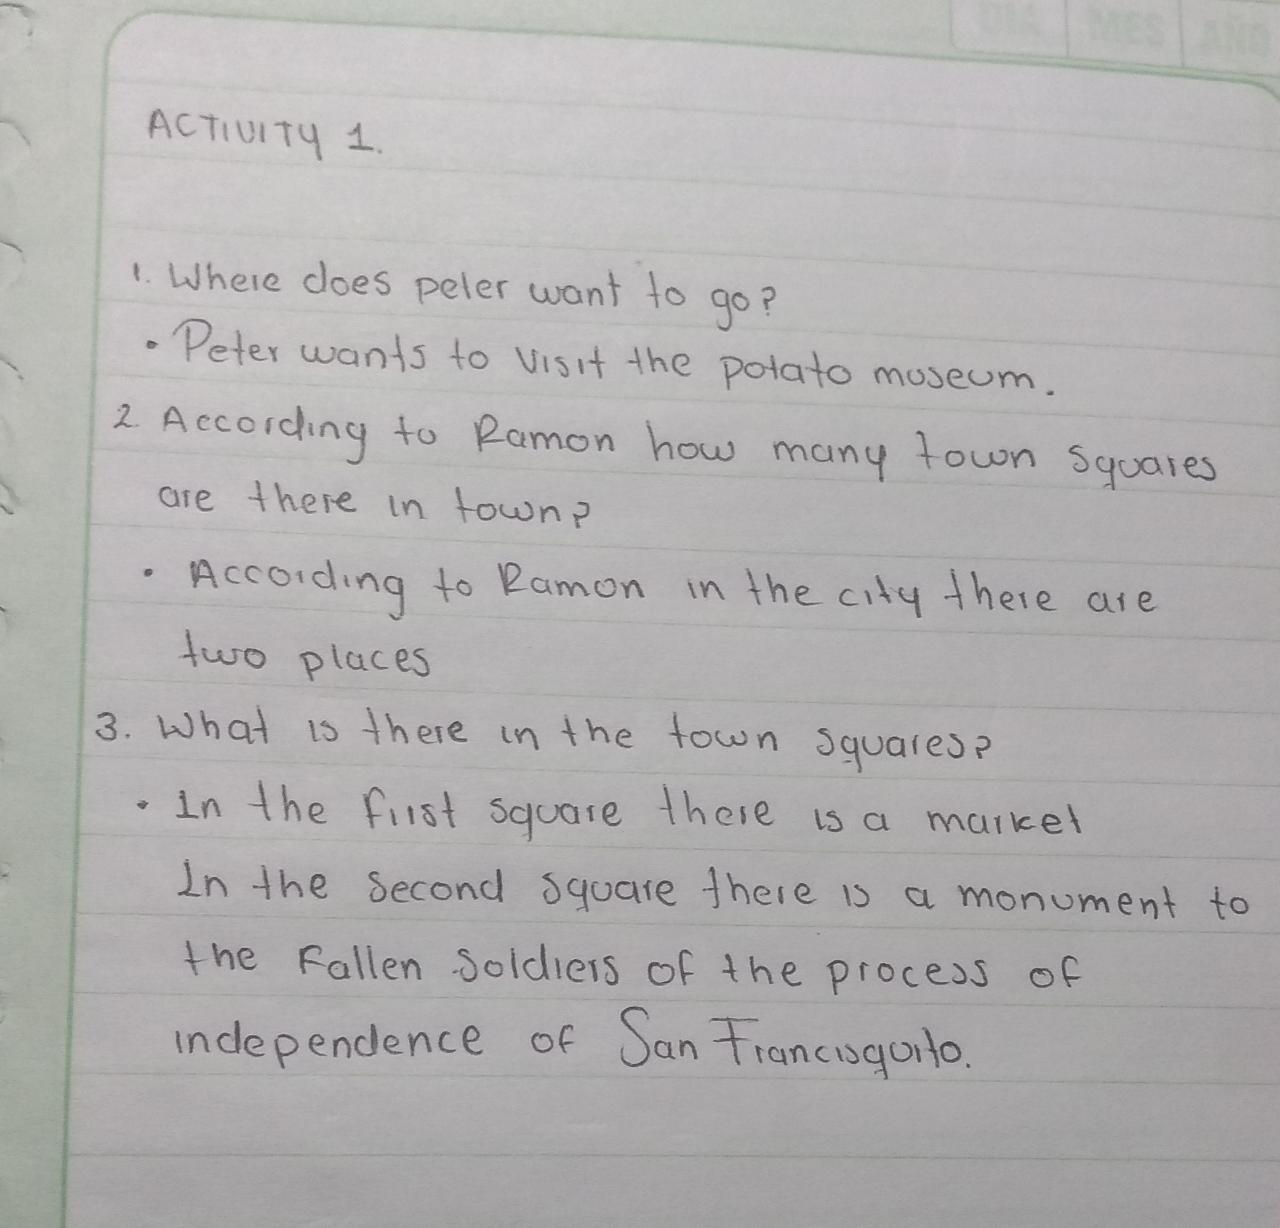 DIA MES AÑO
ACTIVITY 1.
1. Where does peter want to go?
• Peter wants to visit the potato museum.
2. According to Ramon how many town squares
are there in town?
• According to Ramon in the city there are
two places
3. What is there in the town squares?
• In the first square there is a market
In the second square there is a monument to
the Fallen Soldiers of the process of
independence of San Francisquito.